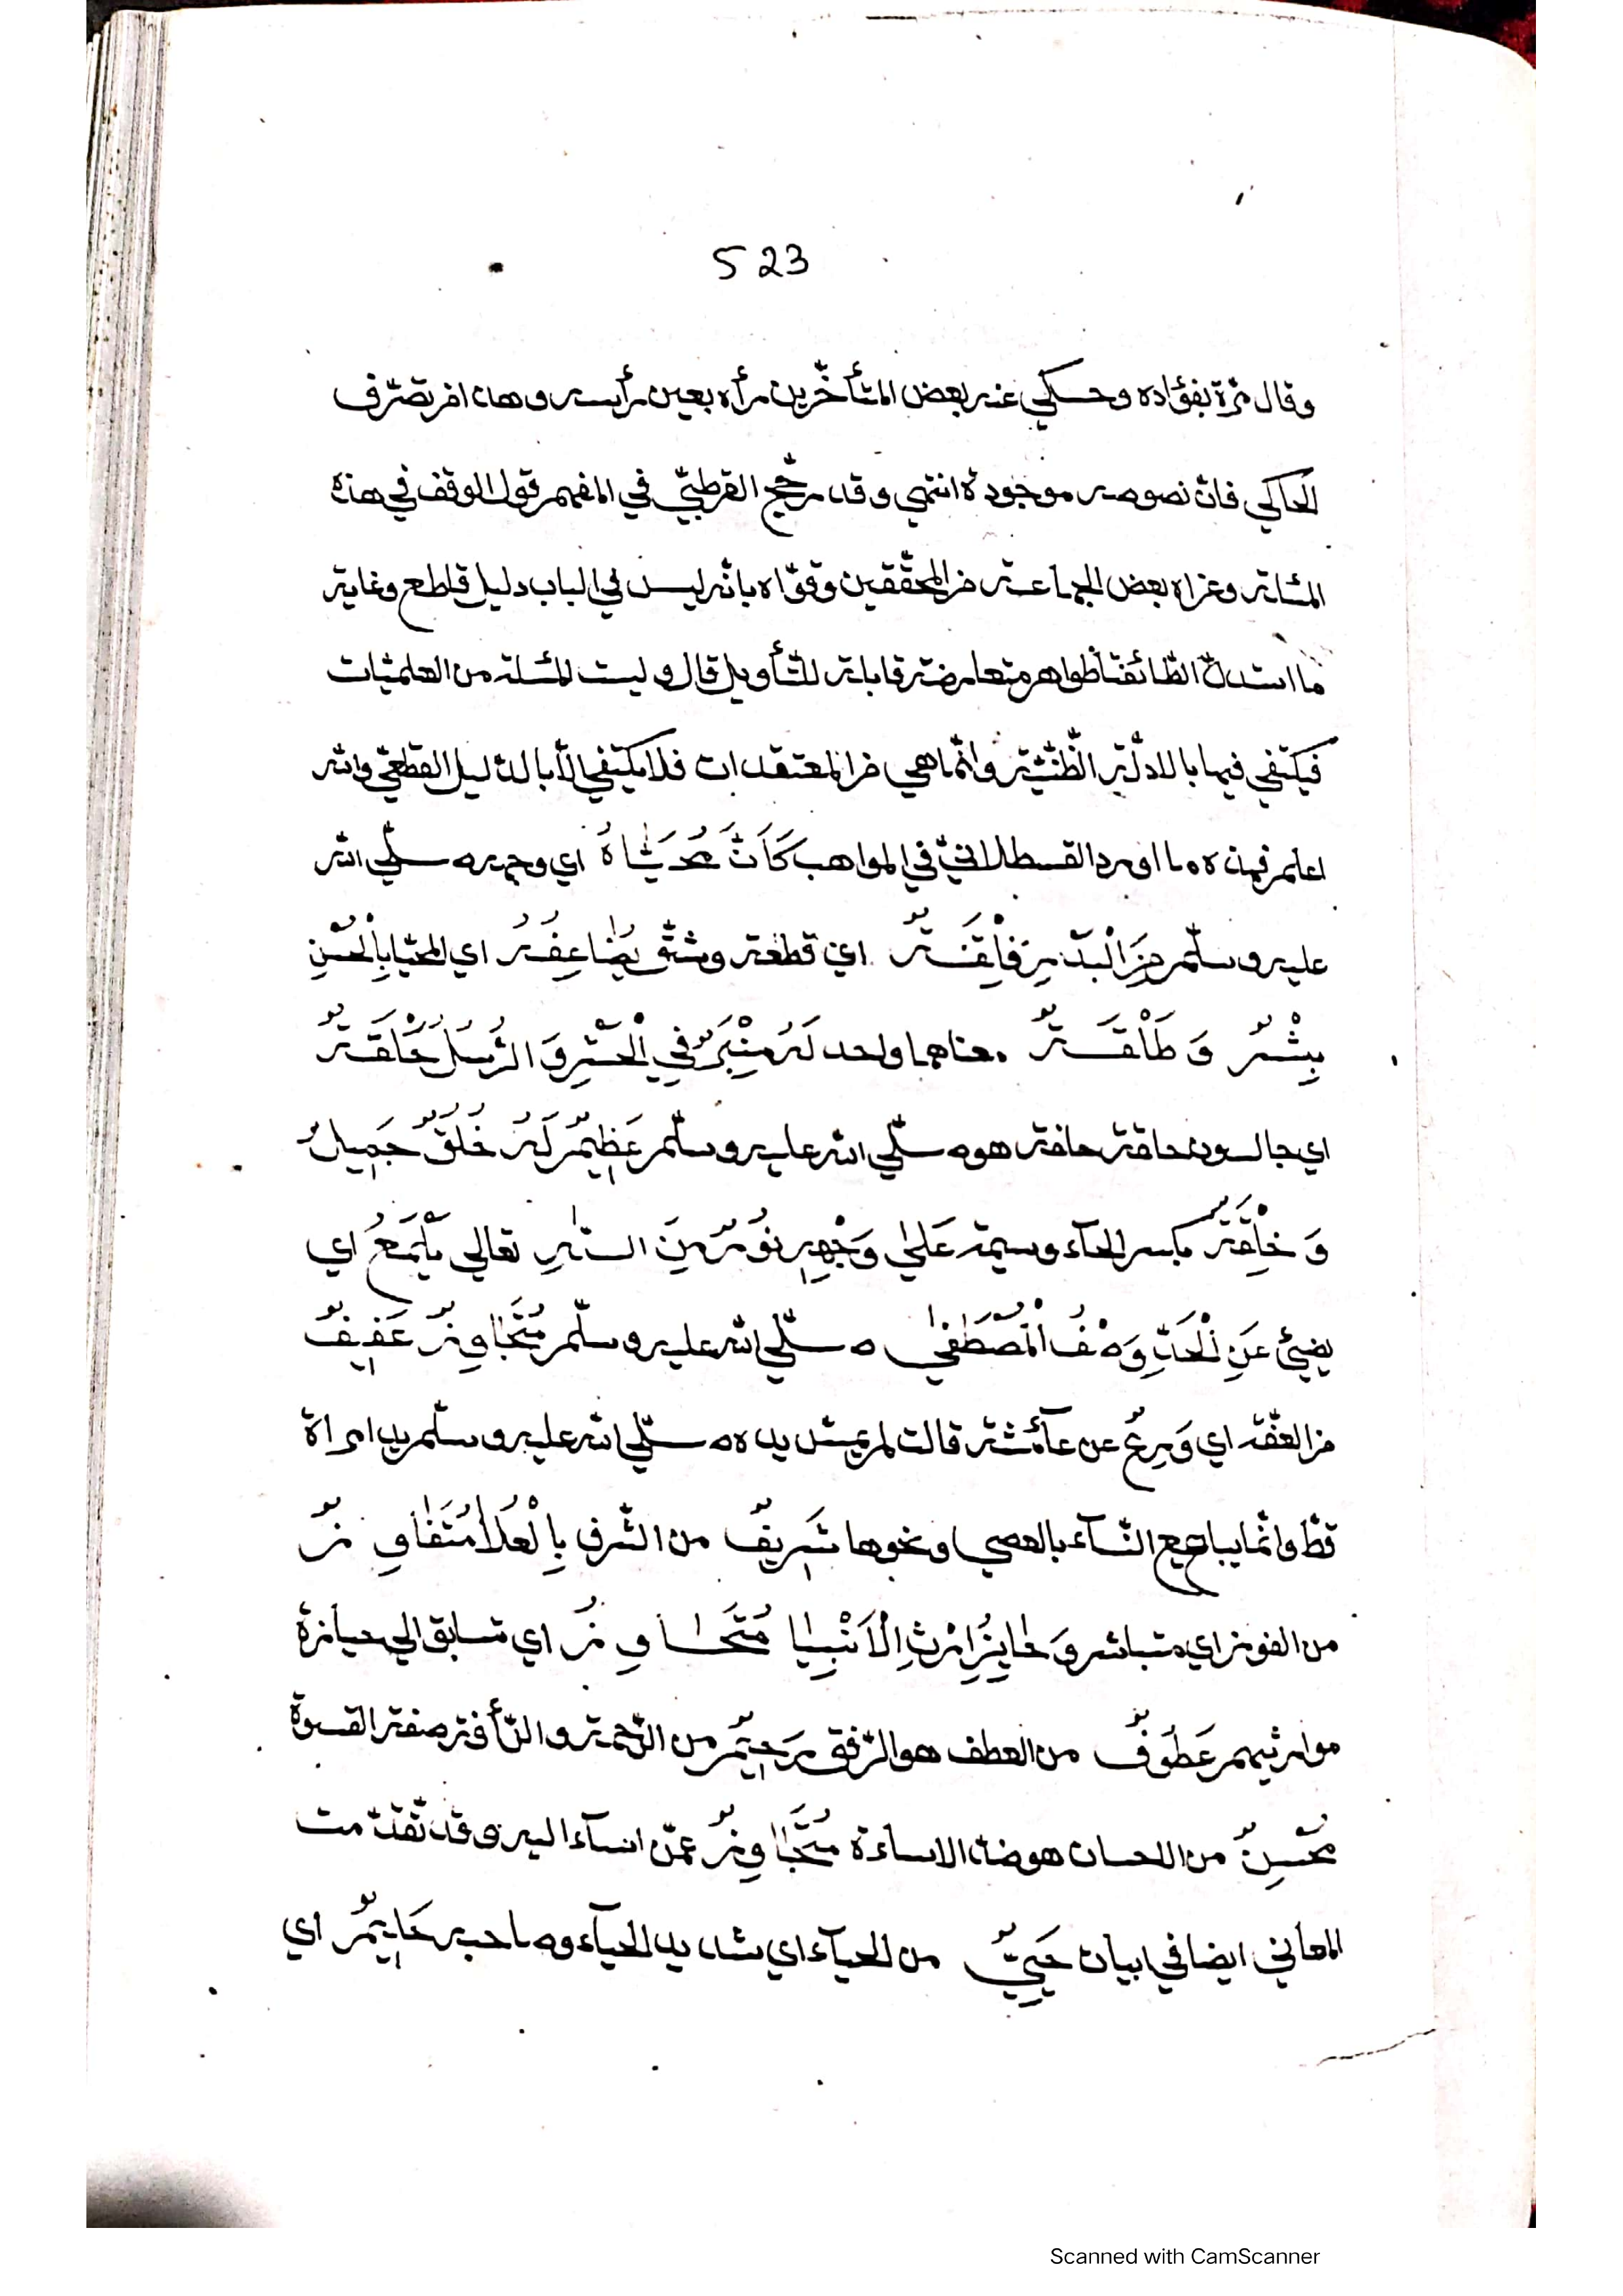 523
وقال مرّة بفؤاده وحكي عنه بعض المتأخّرين رأه بعين رأسه وهذا من تصرّف
الحاكي فانّ نصوصه موجودة انتهي وقد رجّح القرطبيّ في المفهم قول الوقف في هذه
المسئلة وعزاه بعض الجماعة من المحقّقين وقوّاه بانّه ليس في الباب دليل قاطع وغاية
ما استدلّ الطّائفتا ظواهر متعارضة قابلة للتّأويل قال وليست المسئلة من العلميّات
فيكتفي فيها بالادلّة الظّنّيّة وانّما هي من المعتقدات فلا يكتفي الّا بالدّليل القطعيّ والله
اعلم فهذه ما اورد القسطلانيّ في المواهب كَاَنَّ مُحَيَّاهُ اي وجهه صلّي الله
عليه وسلّم مِنَ الْبَدْرِ فِلْقَةٌ اي قطعة وشقّ يُضَاعِفُهُ اي المحيّا بِالْحُسْنِ
بِشْرٌ وَ طَلْقَةٌ معناهما واحد لَهُ مِنْبَرٌ فِي الْحَشْرِ وَ الرُّسُلُ حَلْقَةٌ
اي جالسون حلقة حلقة هو صلّي الله عليه وسلّم عَظِيمٌ لَهُ خُلُقٌ جَمِيلٌ
وَ خِلْقَةٌ بكسر الخآء وسيمة عَلَي وَجْهِهِ نُورٌ مِنَ اللّٰهِ تعالي يَلْمَعُ اي
يضيئ عَنِ الْحَقِّ وَصْفُ الْمُصْطَفٰي صلّي الله عليه وسلّم مُتَجَاوِزٌ عَفِيفٌ
من العفّة اي وَرِعٌ عن عآئشة قالت لم يمسّ يده صلّي الله عليه وسلّم يد امراة
قطّ وانّما يبايع النّسآء بالعصي ونحوها شَرِيفٌ من الشّرف بِالْعُلَا مُتَفَاوِزٌ
من الفوز اي متباشر وَ حَايِزُ اِرْثِ الْاَنْبِيَا مُتَحَاوِزُ اي متسابق الي حيازة
مواريثهم عَطُوفٌ من العطف هو الرّفق رَحِيمٌ من الرّحمة والرّأفة صفة القسوة
مُحْسِنٌ من الاحسان هو ضدّ الاساءة مُتَجَاوِزٌ عمّن اسآء اليه وقد تقدّمت
المعاني ايضا في ابيات حَيِيٌّ من الحيآء اي شديد الحيآء وصاحبه حَلِيمٌ اي
Scanned with CamScanner